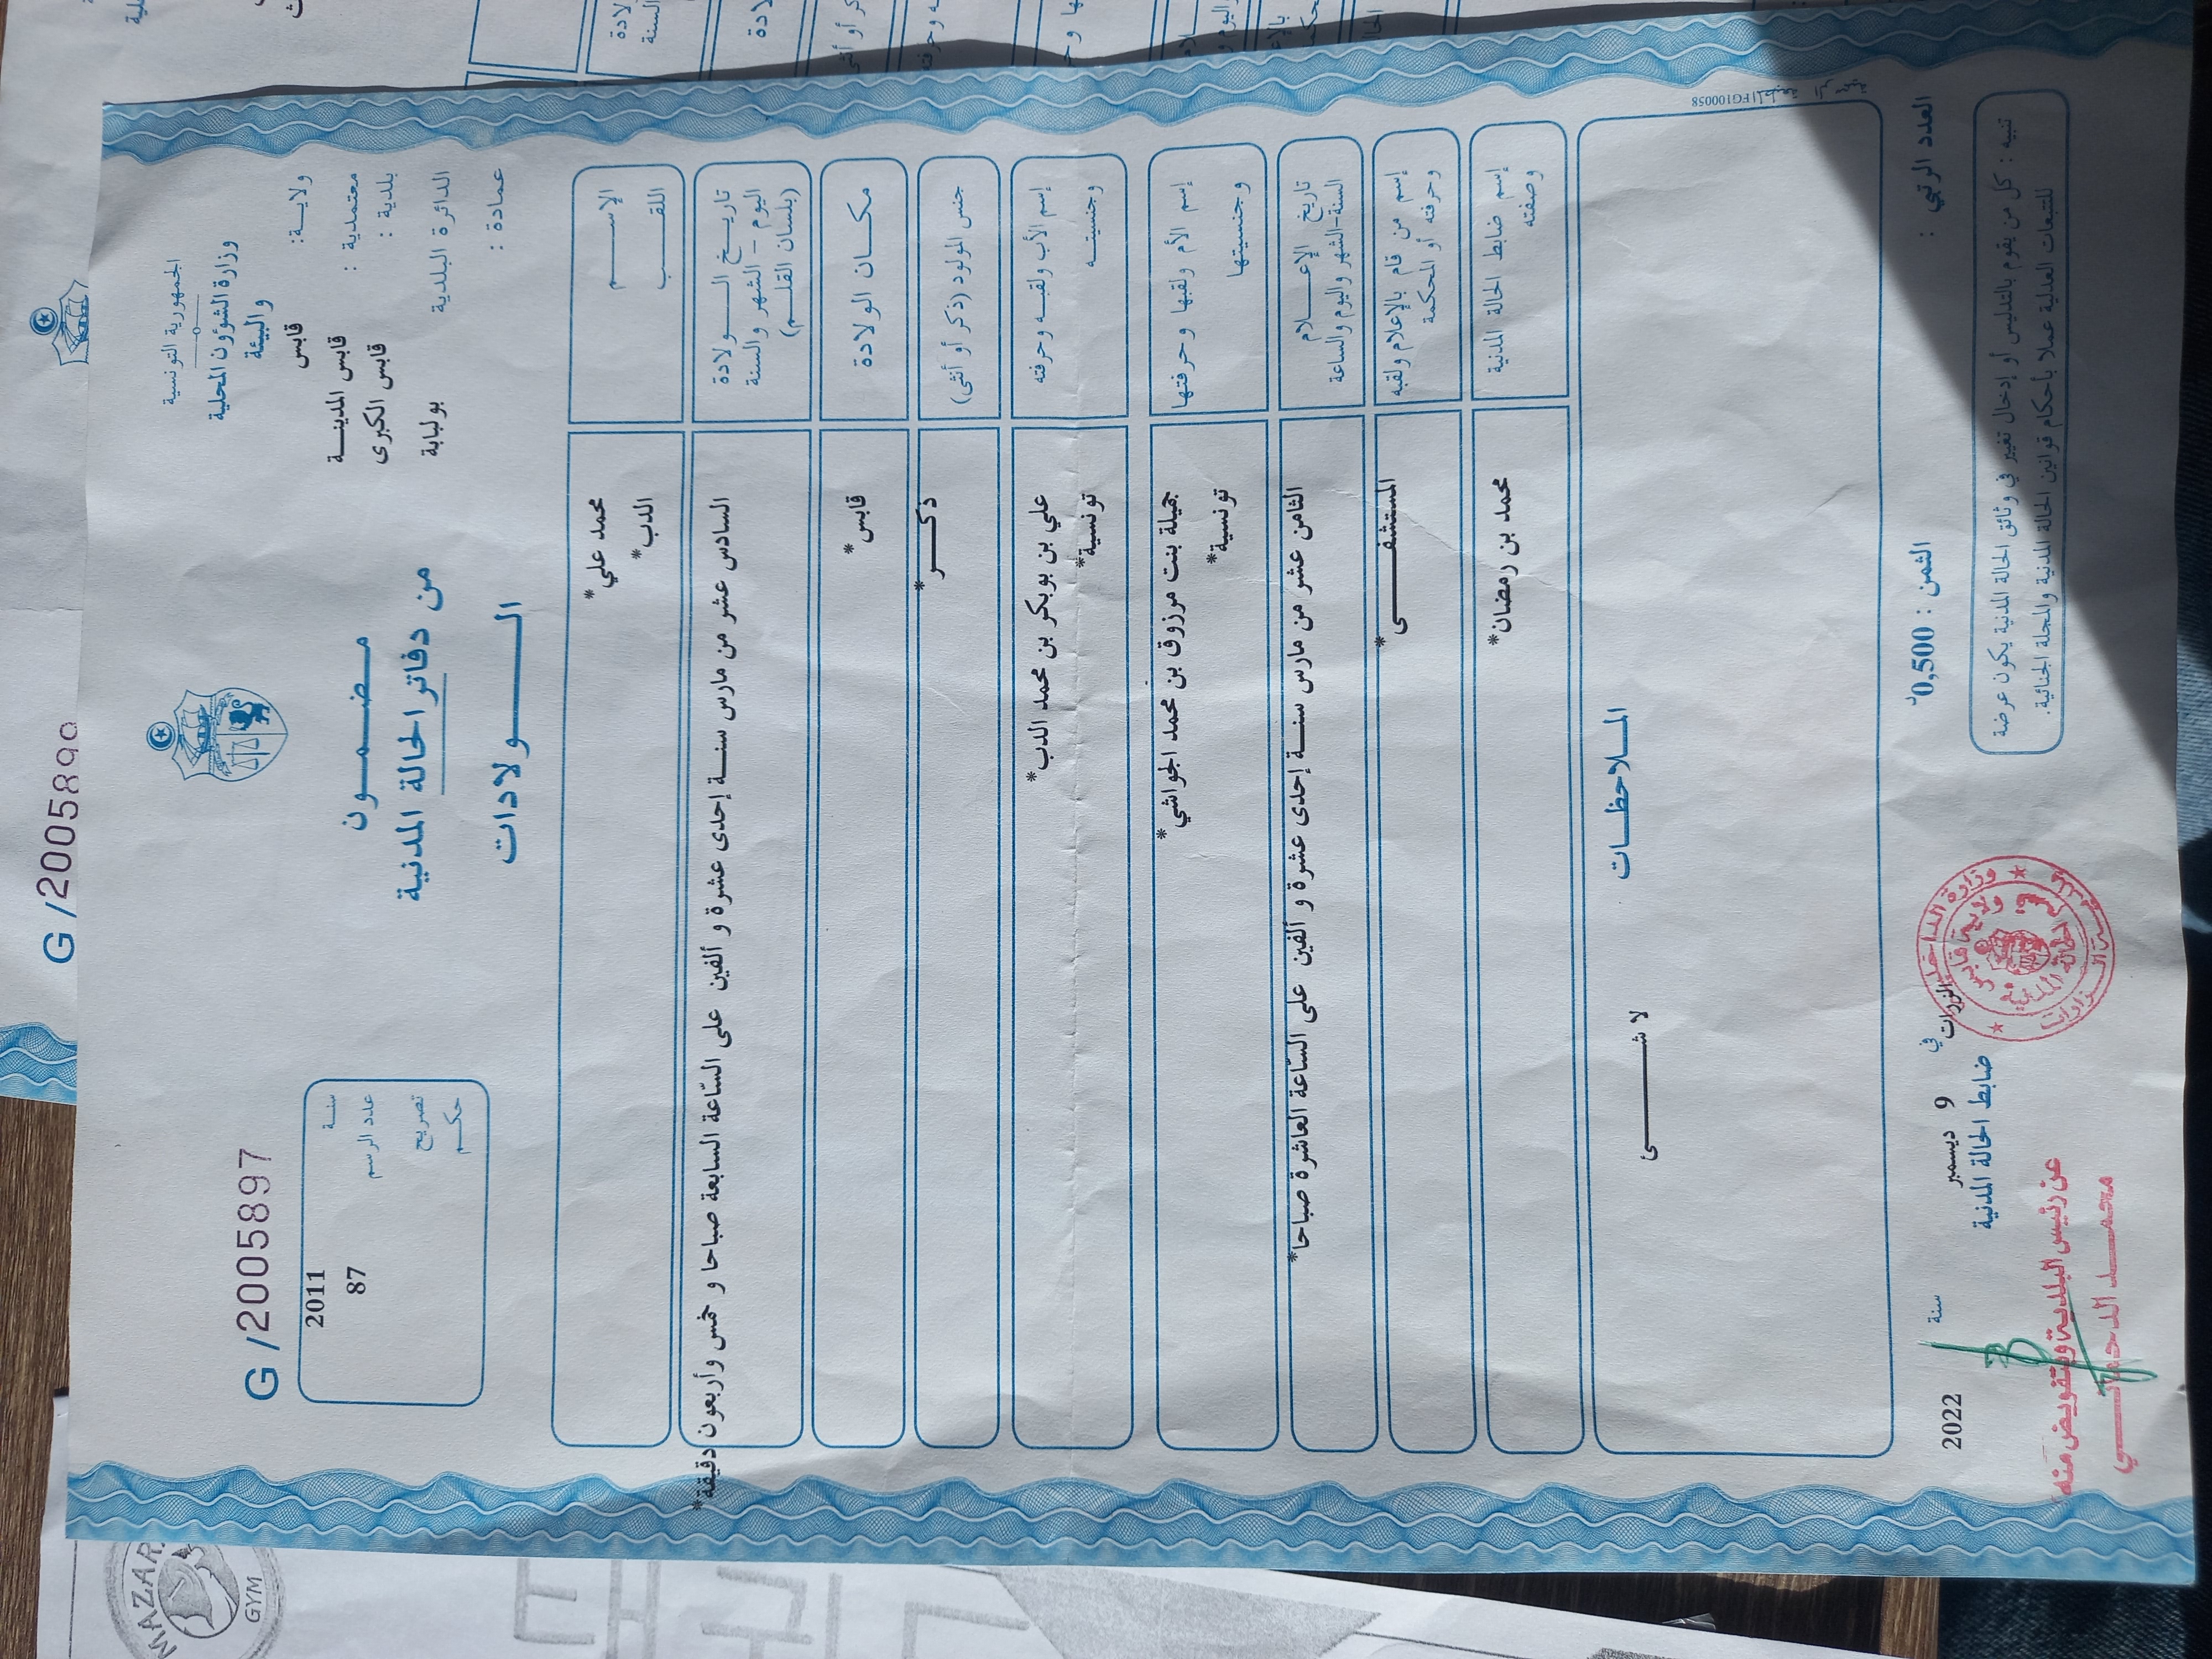 G /2005897
الجمهورية التونسية
وزارة الشؤون المحلية
والبيئة
ولايـة: قابس
معتمدية : قابس المدينـــة
بلدية : قابس الكبرى
الدائرة البلدية بولبابة
عمادة :
مـضـمـــون
من دفاتر الحالة المدنية
الـــــولادات
سنـة 2011
عدد الرسم 87
تصريح
حكـم
الإســـم محمد علي*
اللقـــب الدب*
تاريـخ الـــولادة السادس عشر من مارس سنـــة إحدى عشرة و ألفين على السّاعة السابعة صباحا و خمس وأربعون دقيقة*
اليوم - الشهر والسنة
(بلسان القلـم)
مكـــان الولادة قابس*
جنس المولود (ذكر أو أنثى) ذكـــر*
إسم الأب ولقبـه وحرفته علي بن بوبكر بن محمد الدب*
وجنسيتـه تونسية*
إسم الأم ولقبها وحرفتها جميلة بنت مرزوق بن محمد الجواشي*
وجنسيتها تونسية*
تاريخ الإعـــلام الثامن عشر من مارس سنـــة إحدى عشرة و ألفين على السّاعة العاشرة صباحا*
السنة-الشهر واليوم والساعة
إسم من قام بالإعلام ولقبه المستشفـــــى*
وحرفته أو المحكمة
إسم ضابط الحالة المدنية محمد بن رمضان*
وصفته
المـلاحظـات
لا شـــــئ
المطبعة الرسمية FG100058
العدد الرتبي :
الثمن : 0,500د
الزرات في 9 ديسمبر سنة 2022
ضابط الحالة المدنية
تنبيه : كل من يقوم بالتدليس أو إدخال تغيير في وثائق الحالة المدنية يكون عرضة
للتتبعات العدلية عملا بأحكام قوانين الحالة المدنية والمجلة الجنائية.
وزارة الداخلية
ولاية قابس
الحالة المدنية
عن رئيس البلدية وبتفويض منه
G /200589
MAZAR
GYM
태권